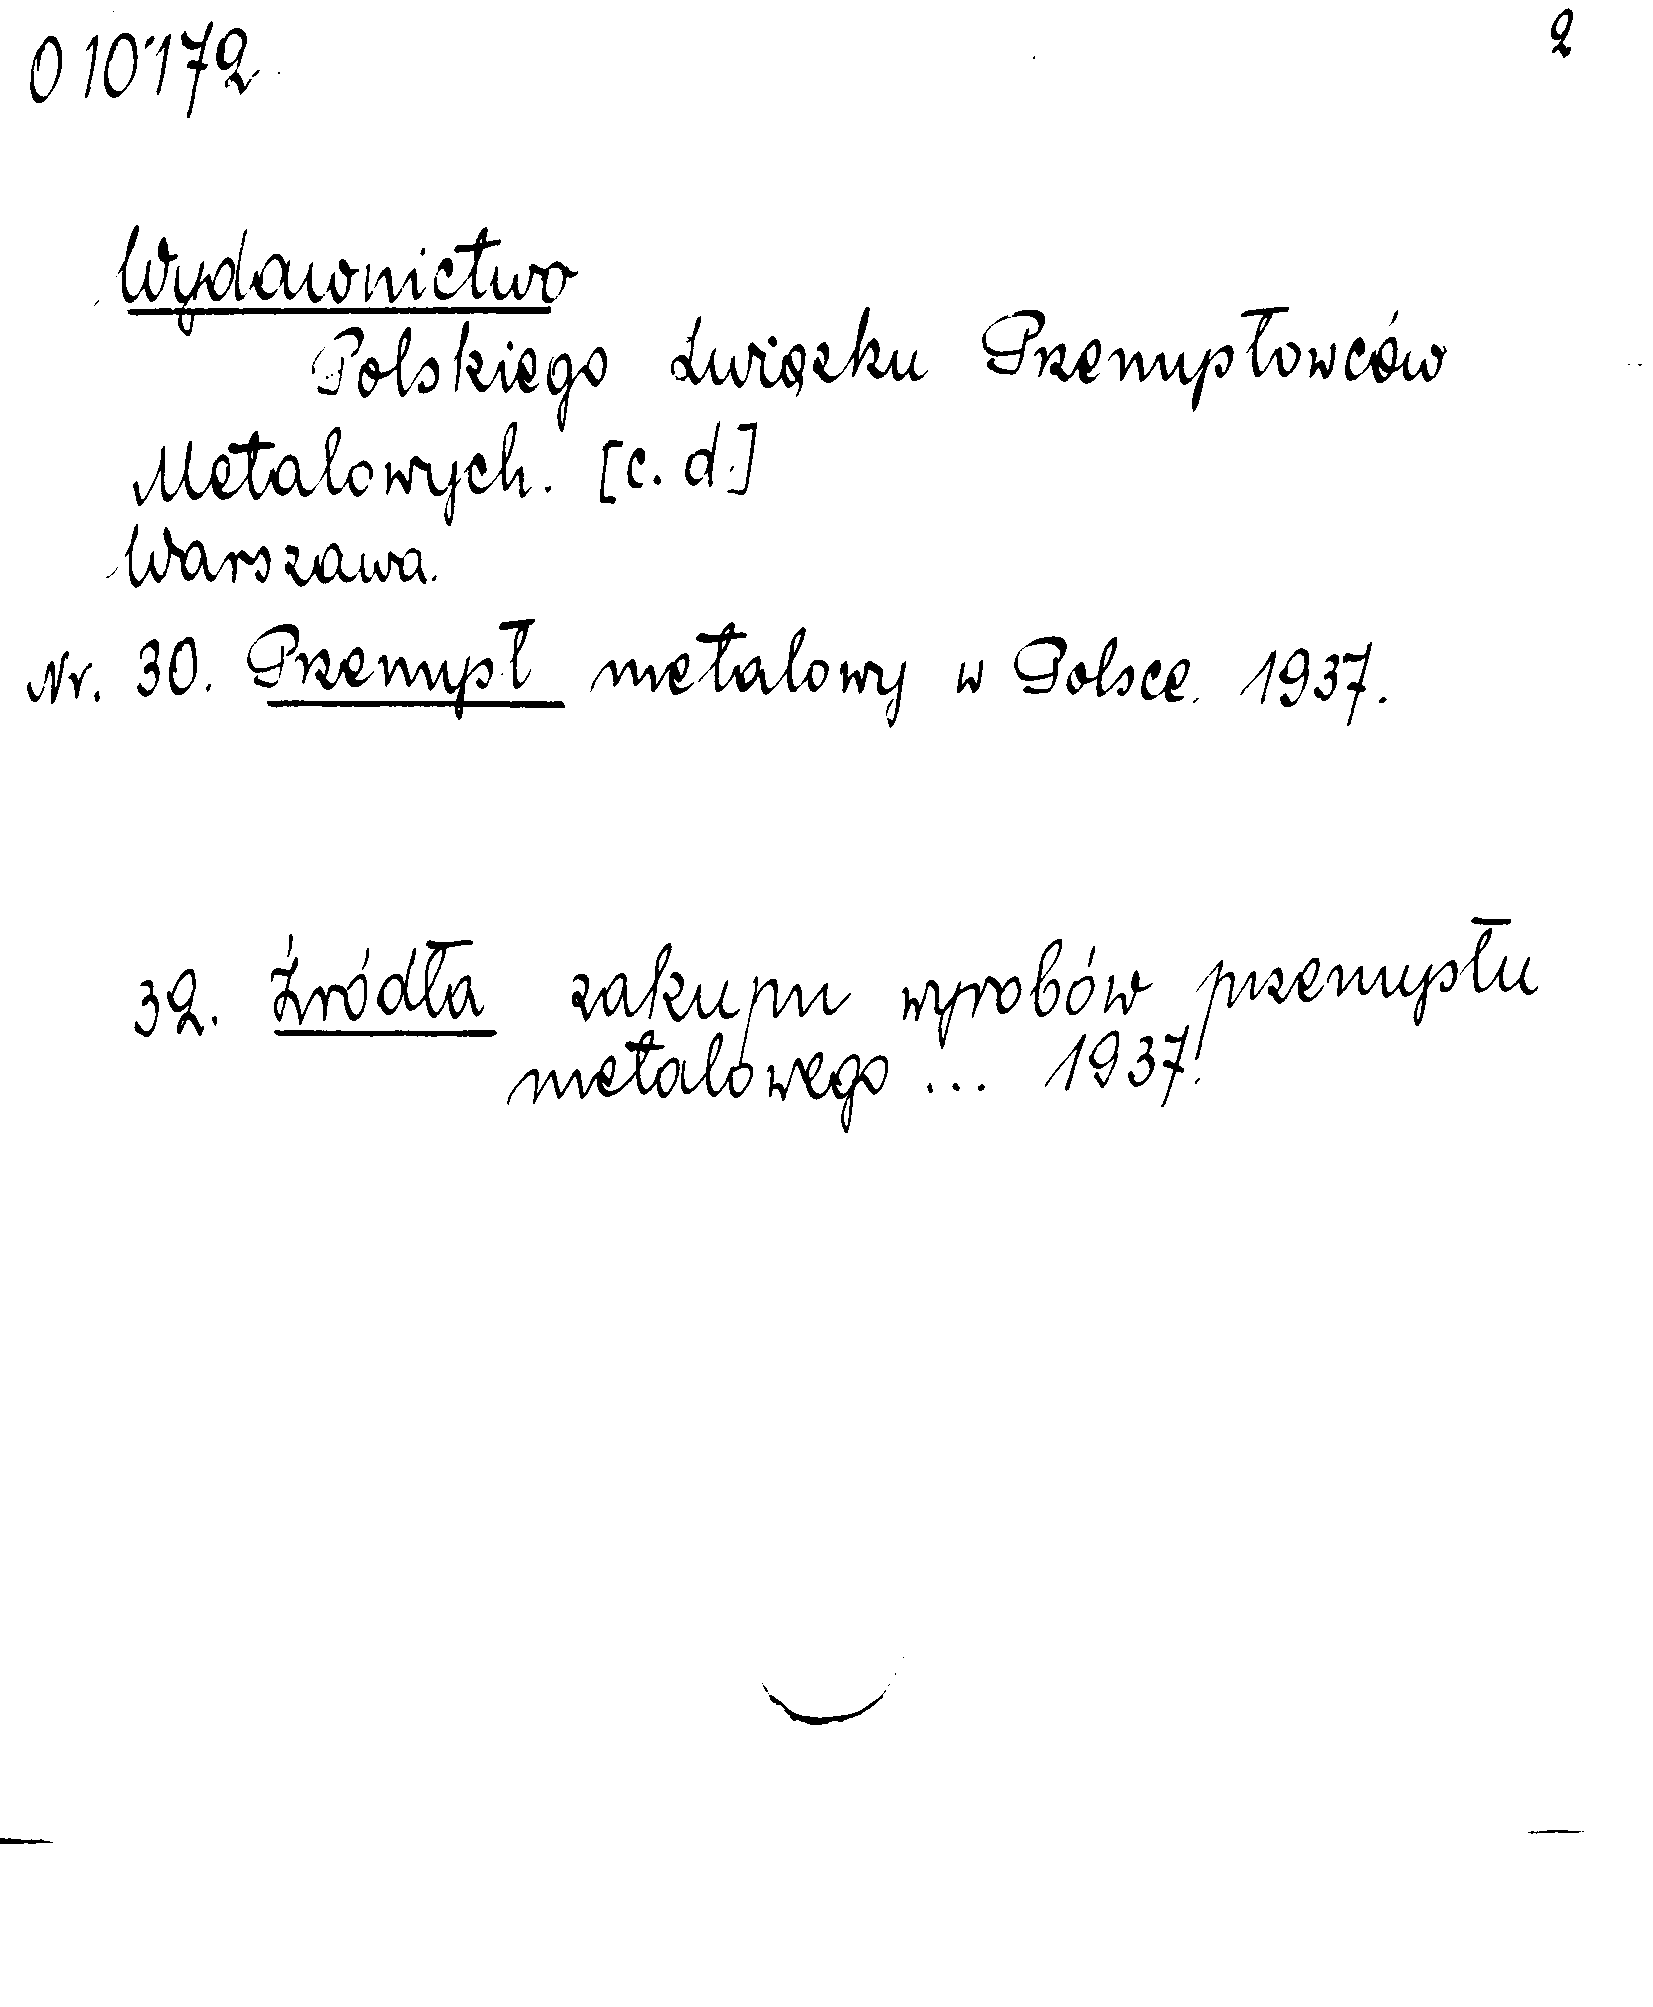 010172
2
Wydawnictwo
Polskiego Związku Przemysłowców
Metalowych. [c. d.]
Warszawa.
Nr. 30. Przemysł metalowy w Polsce. 1937.
32. Źródła zakupu wyrobów przemysłu
metalowego ... 1937.